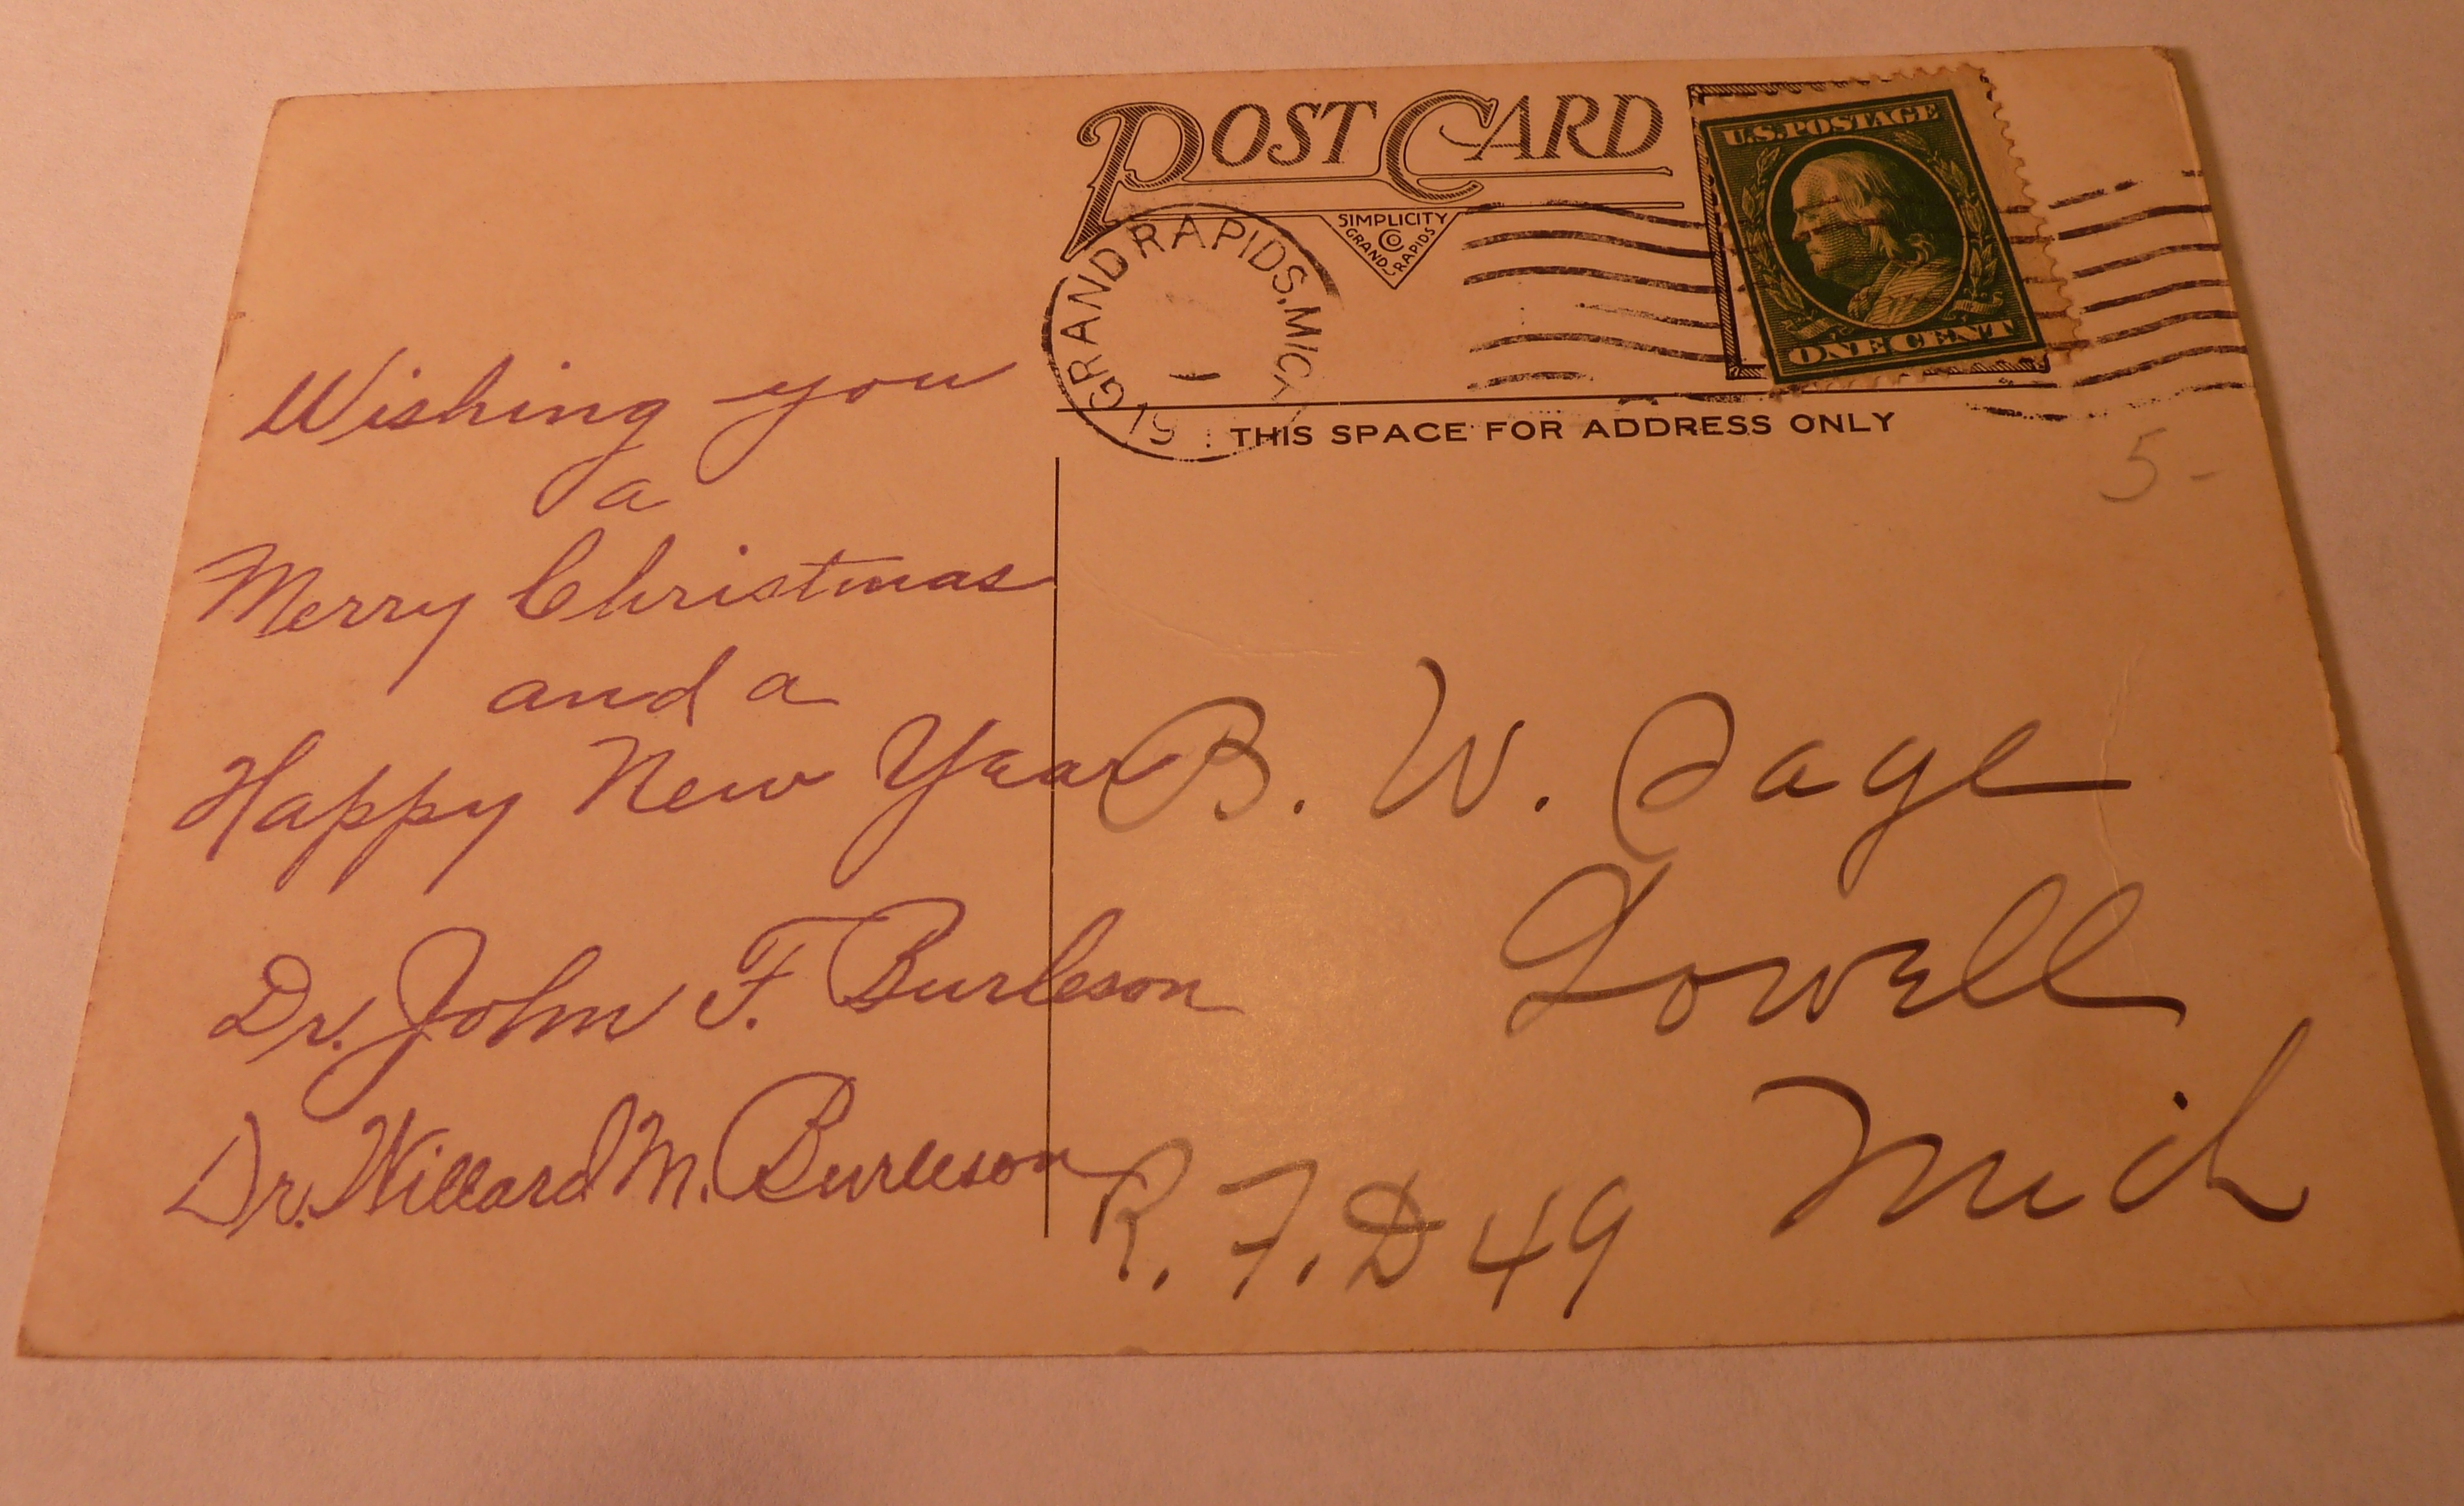 POST CARD
SIMPLICITY
CO
GRAND RAPIDS
U.S. POSTAGE
ONE CENT
GRAND RAPIDS, MICH.
THIS SPACE FOR ADDRESS ONLY
5-
Wishing you
a
Merry Christmas
and a
Happy New Year
Dr. John F. Burleson
Dr. Willard M. Burleson
B. W. Page
Lowell
Mich
R. F. D 49